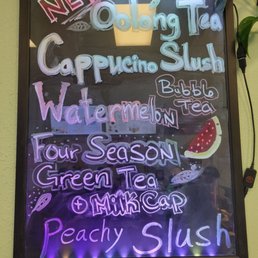 NEW
Oolong Tea
Cappucino Slush
Watermelon Bubble Tea
Four Season
Green Tea
+ Milk Cap
Peachy Slush